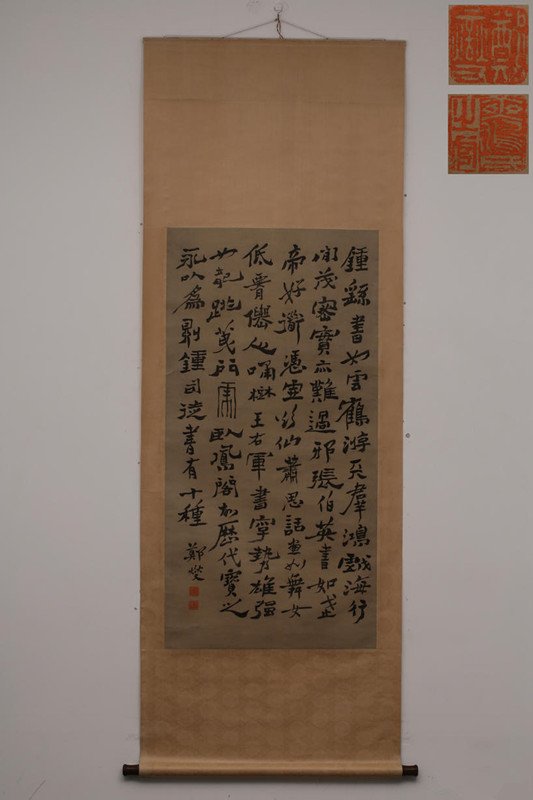 鍾繇書如雲鶴游天羣鴻戲海行
間茂密實亦難過邪張伯英書如武
帝好道憑虛欲仙蕭思話書如舞女
低腰僊人嘯樹王右軍書字勢雄强
如龍跳天門虎臥鳳閣故歷代寶之
永以為訓鍾司徒書有十種
鄭燮
爽鳩氏之官